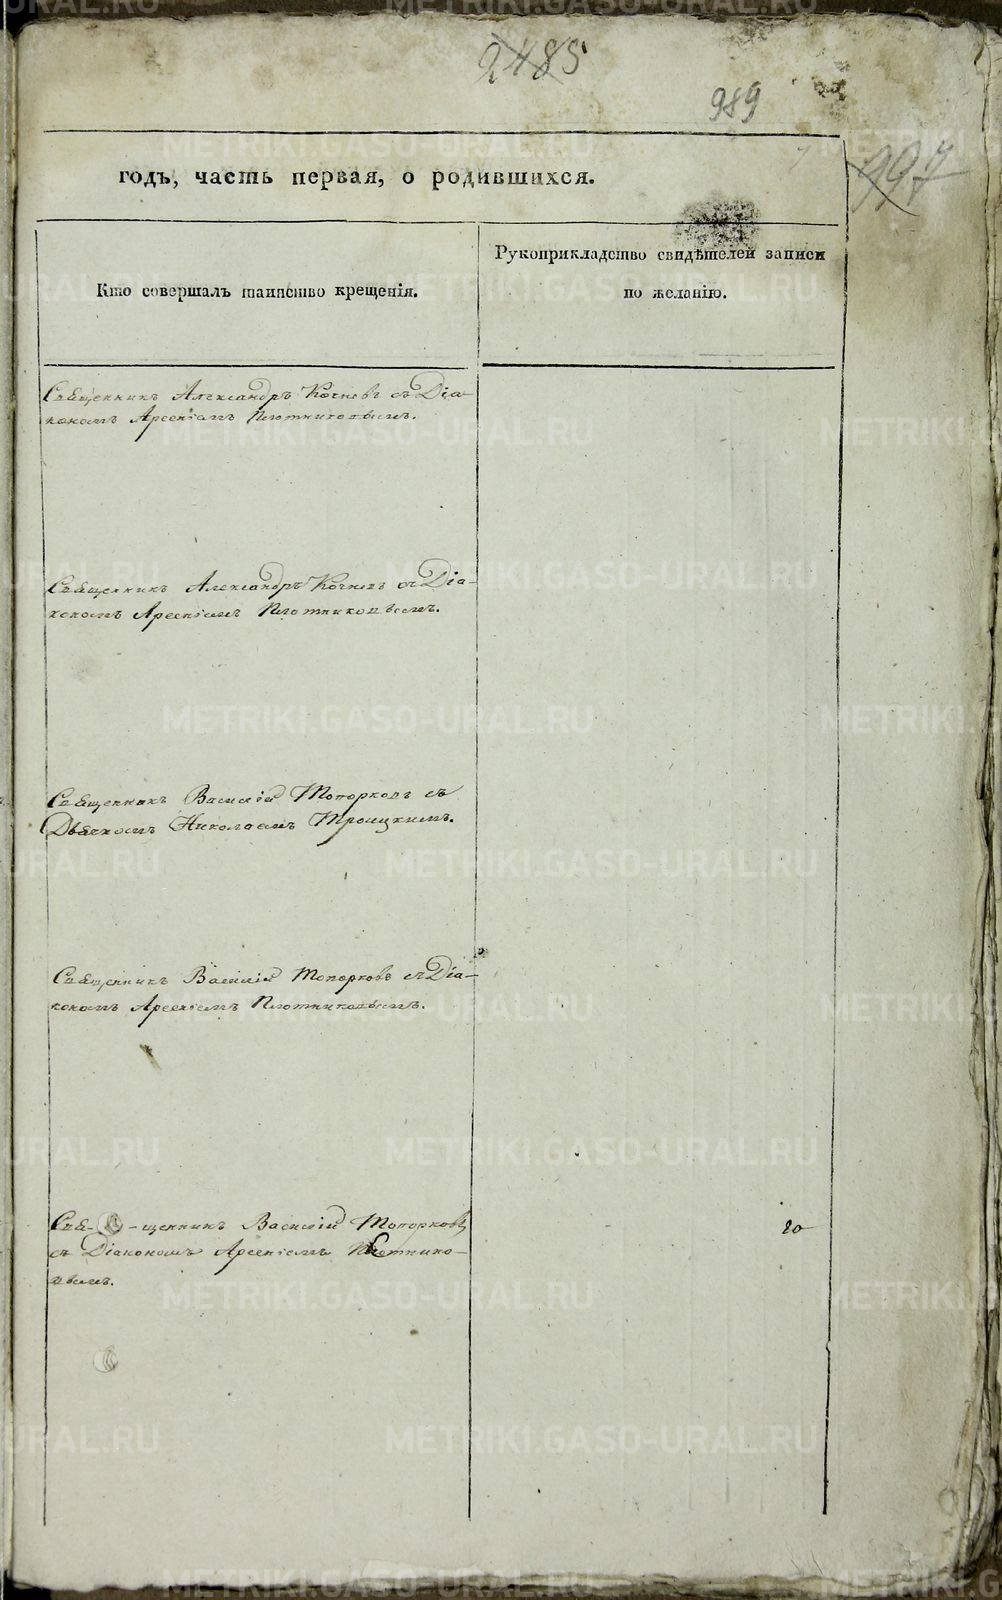 2485
989
997
годъ, часть первая, о родившихся.
Кто совершалъ таинство крещенія.
Рукоприкладство свидѣтелей записи
по желанію.
Священникъ Александръ Кочневъ съ Діа-
кономъ Арсеніемъ Плотниковымъ.
Священникъ Александръ Кочневъ съ Діа-
кономъ Арсеніемъ Плотниковымъ.
Священникъ Василій Топорковъ съ
Дьячкомъ Николаемъ Троицкимъ.
Священникъ Василій Топорковъ съ Діа-
кономъ Арсеніемъ Плотниковымъ.
Свя- -щенникъ Василій Топорковъ
съ Діакономъ Арсеніемъ Плотнико-
вымъ.
METRIKI.GASO-URAL.RU